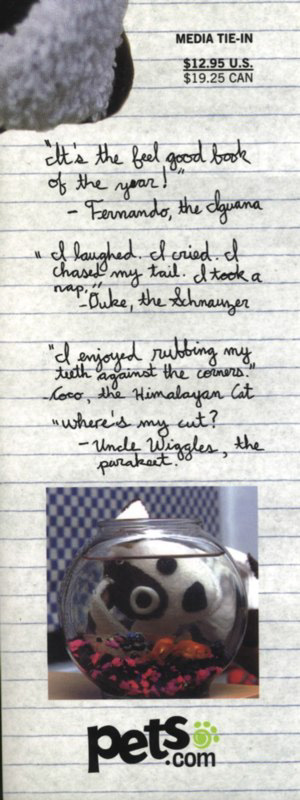 MEDIA TIE-IN
$12.95 U.S.
$19.25 CAN
"It's the feel good book
of the year!"
- Fernando, the Iguana
"I laughed. I cried. I
chased my tail. I took a
nap."
-Duke, the Schnauzer
"I enjoyed rubbing my
teeth against the corners."
-Coco, the Himalayan Cat
"where's my cut?
-Uncle Wiggles, the
parakeet.
pets
.com